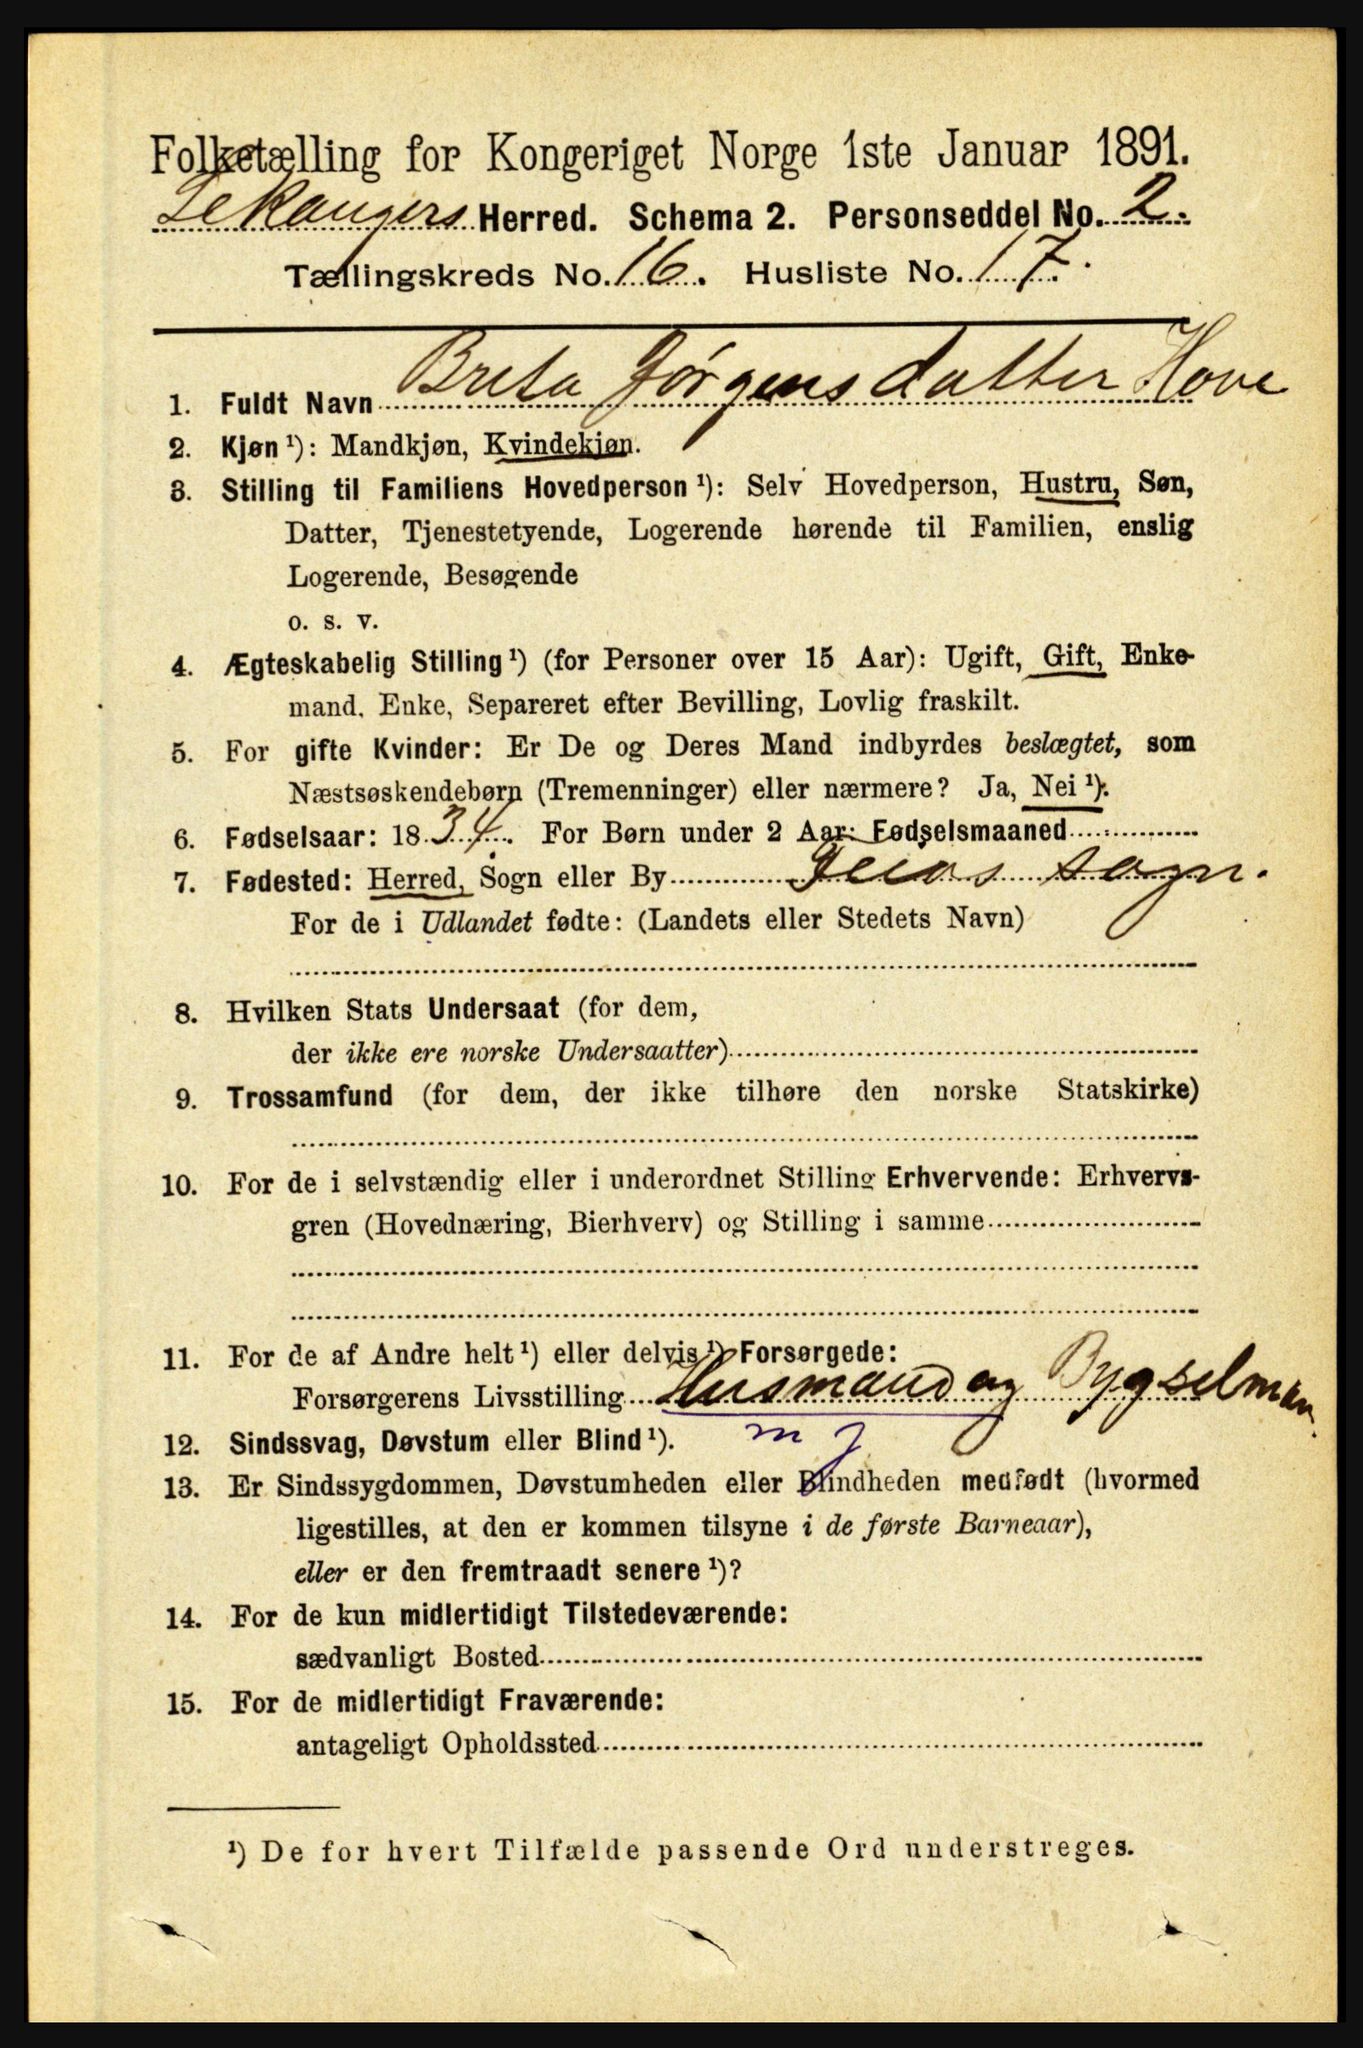 Folketælling for Kongeriget Norge 1ste Januar 1891.
Lekangers Herred. Schema 2. Personseddel No. 2.
Tællingskreds No. 16. Husliste No. 17.
1. Fuldt Navn Brita Jørgensdatter Hove
2. Kjøn ¹): Mandkjøn, Kvindekjøn.
3. Stilling til Familiens Hovedperson ¹): Selv Hovedperson, Hustru, Søn,
Datter, Tjenestetyende, Logerende hørende til Familien, enslig
Logerende, Besøgende
o. s. v.
4. Ægteskabelig Stilling ¹) (for Personer over 15 Aar): Ugift, Gift, Enke-
mand, Enke, Separeret efter Bevilling, Lovlig fraskilt.
5. For gifte Kvinder: Er De og Deres Mand indbyrdes beslægtet, som
Næstsøskendebørn (Tremenninger) eller nærmere? Ja, Nei ¹).
6. Fødselsaar: 1834. For Børn under 2 Aar: Fødselsmaaned
7. Fødested: Herred, Sogn eller By sogn.
For de i Udlandet fødte: (Landets eller Stedets Navn)
8. Hvilken Stats Undersaat (for dem,
der ikke ere norske Undersaatter)
9. Trossamfund (for dem, der ikke tilhøre den norske Statskirke)
10. For de i selvstændig eller i underordnet Stilling Erhvervende: Erhvervs-
gren (Hovednæring, Bierhverv) og Stilling i samme
11. For de af Andre helt ¹) eller delvis ¹) Forsørgede:
Forsørgerens Livsstilling Husmand og Bygselman.
m j
12. Sindssvag, Døvstum eller Blind ¹).
13. Er Sindssygdommen, Døvstumheden eller Blindheden medfødt (hvormed
ligestilles, at den er kommen tilsyne i de første Barneaar),
eller er den fremtraadt senere ¹)?
14. For de kun midlertidigt Tilstedeværende:
sædvanligt Bosted
15. For de midlertidigt Fraværende:
antageligt Opholdssted
¹) De for hvert Tilfælde passende Ord understreges.